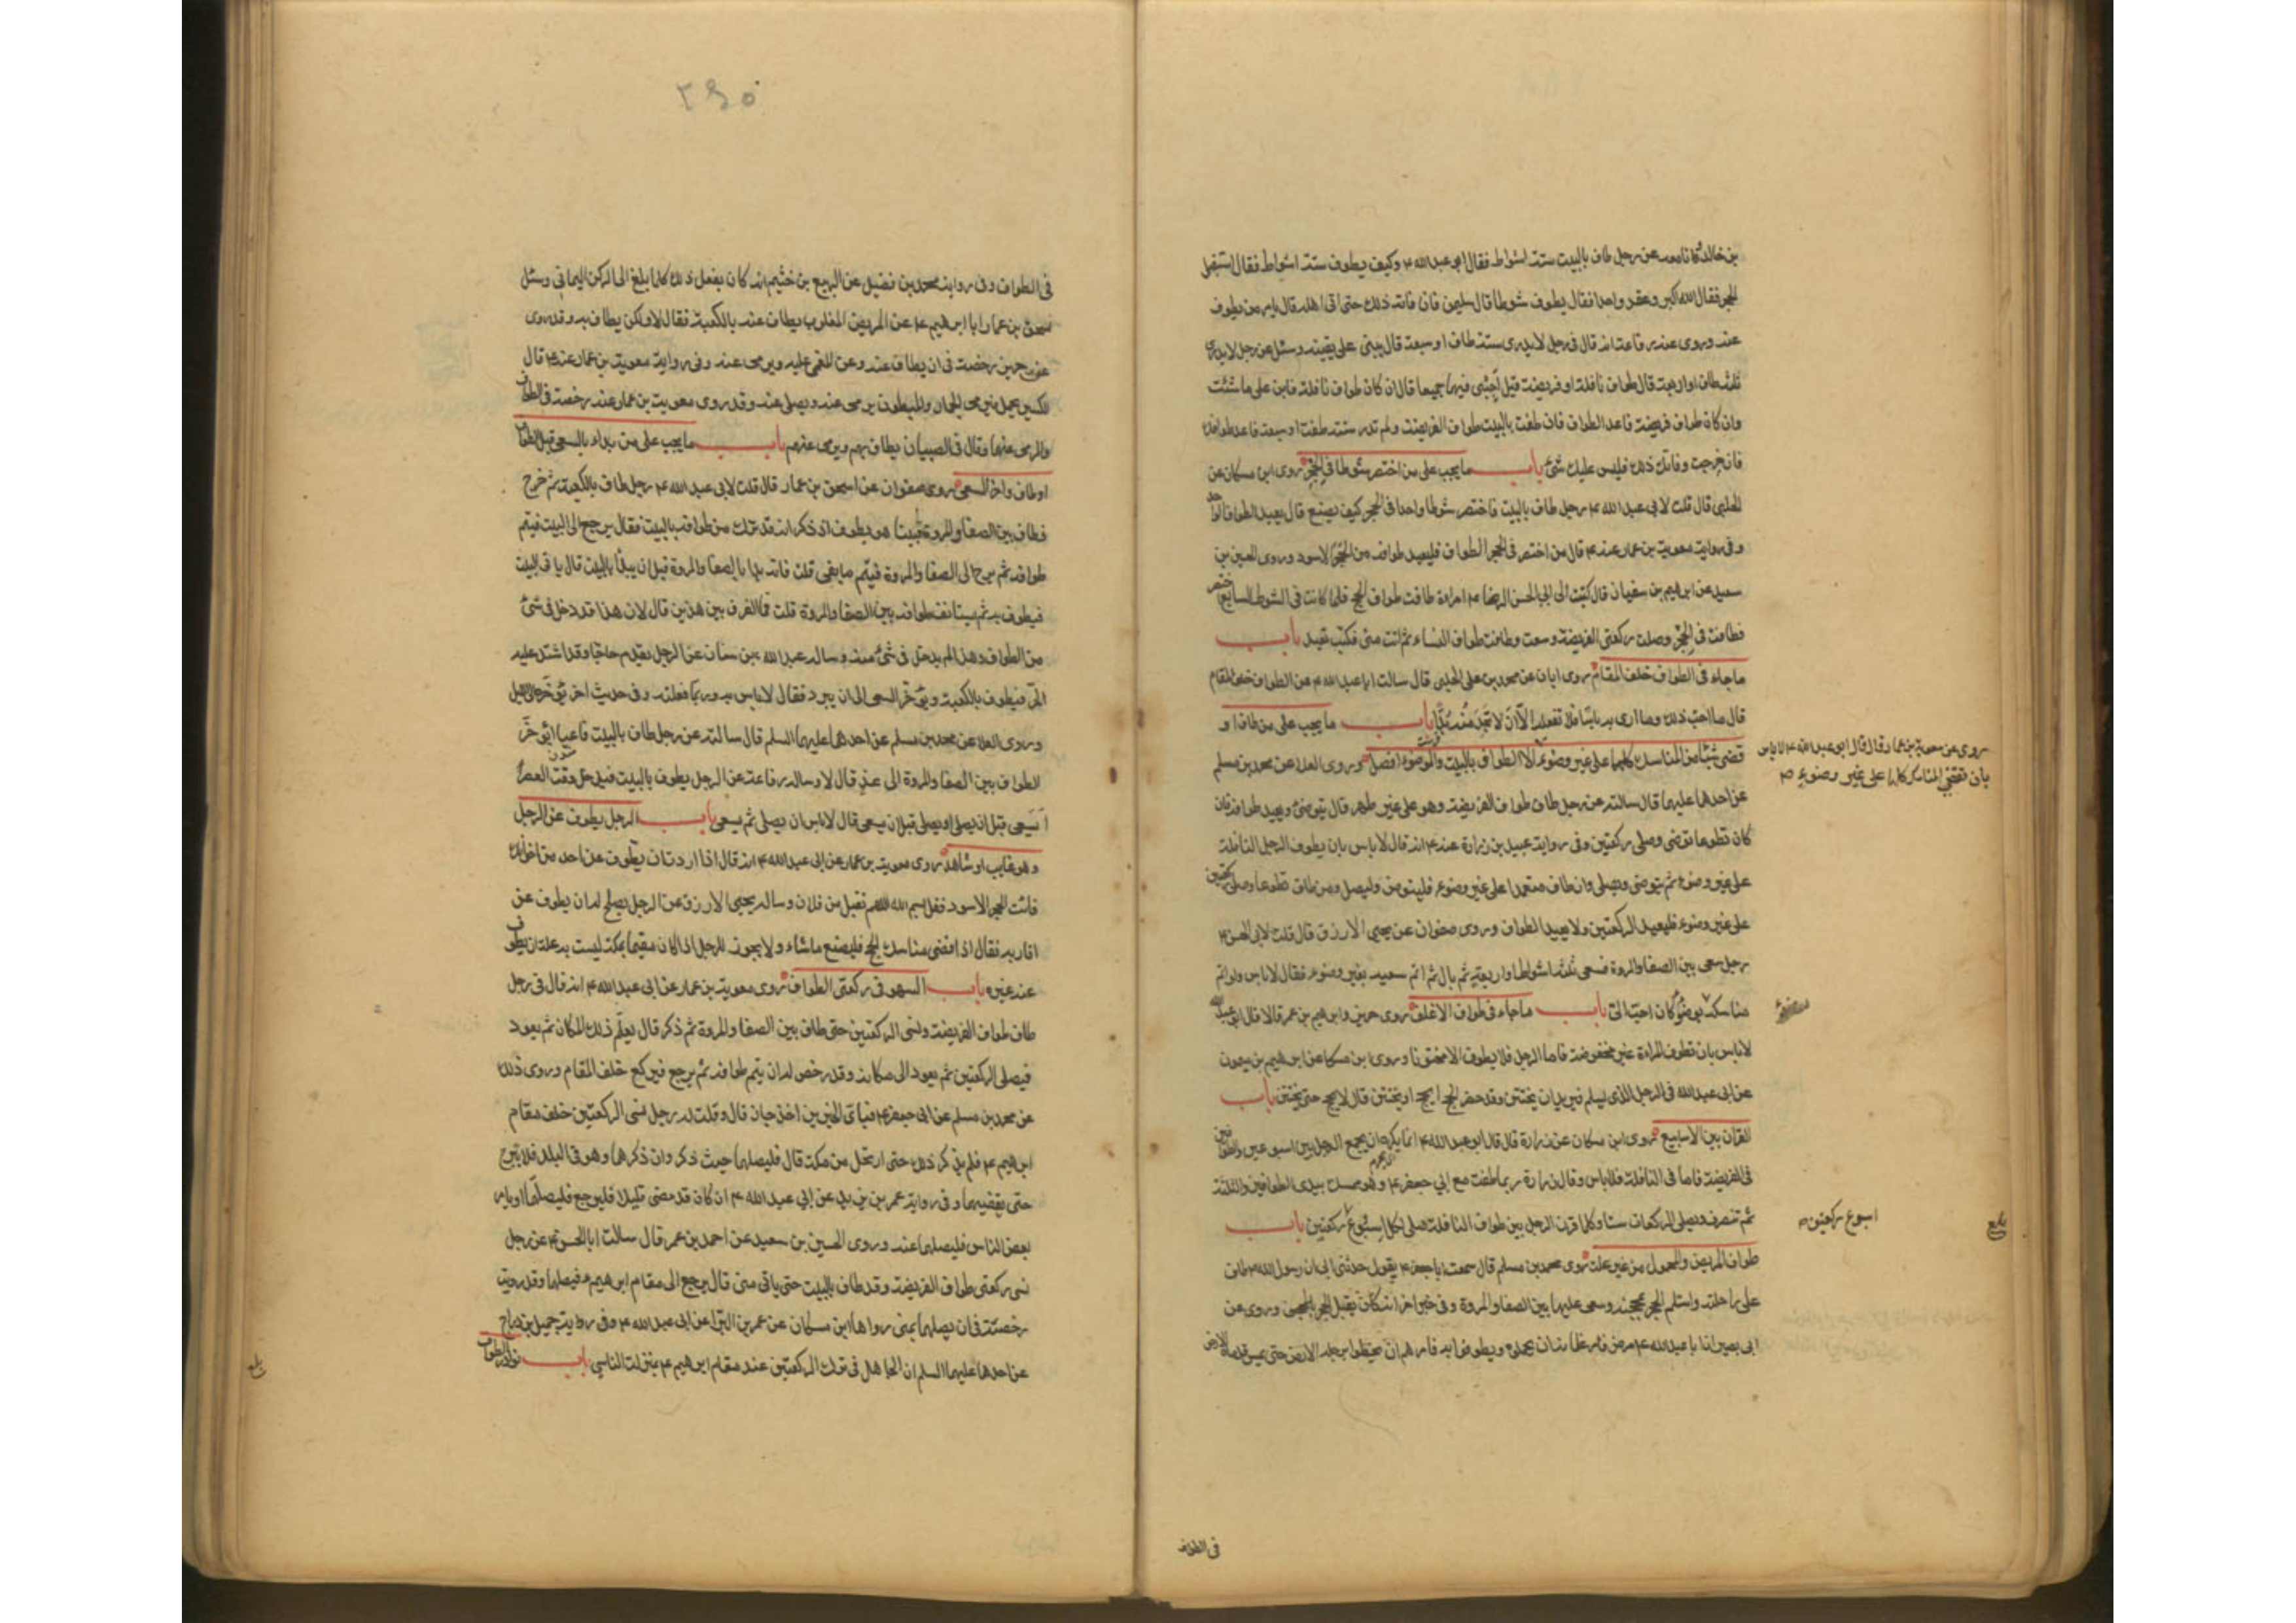 بن خالد كا نا معه عن رجل طاف بالبيت ستة اشواط فقال ابو عبد الله ع وكيف يطوف ستة اشواط فقال استقبل
الحجر فقال الله اكبر وعقد واحدا فقال يطوف شوطا قال سليمن فان فاته ذلك حتى اتى اهله قال يامر من يطوف
عنه وروى عنه رفاعة انه قال في رجل لا يدرى ستة طاف او سبعة قال يبنى على يقينه وسئل عن رجل لا يدرى
ثلثة طاف او اربعة قال طواف نافلة او فريضة قيل اجبنى فيهما جميعا قال ان كان طواف نافلة فابن على ما شئت
وان كان طواف فريضة فاعد الطواف فان طفت بالبيت طواف الفريضة ولم تدر ستة طفت او سبعة فاعد طوافك
فان خرجت وفاتك ذلك فليس عليك شئ باب ما يجب على من اختصر شوطا في الحجر روى ابن مسكان عن
الحلبى قال قلت لابى عبد الله ع رجل طاف بالبيت فاختصر شوطا واحدا في الحجر كيف يصنع قال يعيد الطواف الواحد
وفى رواية معوية بن عمار عنه ع قال من اختصر في الحجر الطواف فليعيد طوافه من الحجر الاسود وروى الحسين بن
سعيد عن ابرهيم بن سفيان قال كتبت الى ابى الحسن الرضا ع امراة طافت طواف الحج فلما كانت في الشوط السابع اختصرت
فطافت في الحجر وصلت ركعتى الفريضة وسعت وطافت طواف النساء ثم اتت منى فكتب تعيد باب
ما جاء في الطواف خلف المقام روى ابان عن محمد بن على الحلبى قال سالت ابا عبد الله ع عن الطواف خلف المقام
قال ما احب ذلك وما ارى به باسا فلا تفعله الا ان لا تجد منه بدا باب ما يجب على من طاف او
قضى شيئا من المناسك كلها على غير وضوء الا الطواف بالبيت والوضوء افضل وروى العلا عن محمد بن مسلم
روى عن معوية بن عمار قال قال ابو عبد الله ع لا باس
بان تقضى المناسك كلها على غير وضوء
عن احدهما عليهما قال سالته عن رجل طاف طواف الفريضة وهو على غير طهر قال يتوضئ ويعيد طوافه فان
كان تطوعا توضى وصلى ركعتين وفى رواية عبيد بن زرارة عنه ع انه قال لا باس بان يطوف الرجل النافلة
على غير وضوء ثم يتوضى ويصلى وان طاف متعمدا على غير وضوء فليتوضئ وليصل ومن طاف تطوعا وصلى ركعتين
على غير وضوء فليعيد الركعتين ولا يعيد الطواف وروى صفوان عن يحيى الازرق قال قلت لابى الحسن ع
رجل سعى بين الصفا والمروة فسعى ثلثة اشواط او اربعة ثم بال ثم اتم سعيه بغير وضوء فقال لا باس ولو اتم
مناسكه بوضوء كان احب الى باب ما جاء في طواف الاغلف روى حريز وابرهيم بن عمر قالا قال ابو عبد الله
لا باس بان تطوف المراة غير مخفوضة فاما الرجل فلا يطوف الا مختونا وروى ابن مسكان عن ابرهيم بن ميمون
عن ابى عبد الله في الرجل الذى يسلم فيريد ان يختتن وقد حضر الحج ايحج او يختتن قال لا يحج حتى يختتن باب
القران بين الاسابيع روى ابن مسكان عن زرارة قال قال ابو عبد الله ع انما يكره ان يجمع الرجل بين اسبوعين والطوافين
في الفريضة فاما في النافلة فلا باس وقال زرارة ربما طفت مع ابي جعفر ع وهو ممسك بيدى الطوافين والثلثة
ثم تنصرف ويصلى الركعات ستا وكلما قرن الرجل بين طواف النافلة صلى لكل اسبوع ركعتين باب
اسبوع ركعتين
بلغ
طواف المريض والمحمول من غير علة روى محمد بن مسلم قال سمعت ابا جعفر ع يقول حدثنى ابى ان رسول الله ص طاف
على راحلته واستلم الحجر بمحجنه وسعى عليها بين الصفا والمروة وفى خبر اخر انه كان يقبل الحجر بالمحجن وروى عن
ابى بصير ان ابا عبد الله ع مرض فامر غلمانه ان يحملوه ويطوفوا به فامرهم ان يخطوا برجله الارض حتى يمس قدماه الارض
في الطواف
٢٩٥
في الطواف وفى رواية محمد بن فضيل عن الربيع بن خثيم انه كان يفعل ذلك كلما بلغ الى الركن اليمانى وسئل
اسحق بن عمار ابا ابرهيم ع عن المريض المغلوب يطاف عنه بالكعبة فقال لا ولكن يطاف به وقد روى
عنه حريز رخصة في ان يطاف عنه وعن المغمى عليه ويرمى عنه وفى رواية معوية بن عمار عنه ع قال
الكسير يحمل فيرمى الجمار والمبطون يرمى عنه ويصلى عنه وقد روى معوية بن عمار عنه رخصة في الطواف
والرمى عنهما وقال في الصبيان يطاف بهم ويرمى عنهم باب ما يجب على من بداء بالسعى قبل الطواف
او طاف واخر السعى روى صفوان عن اسحق بن عمار قال قلت لابى عبد الله ع رجل طاف بالكعبة ثم خرج
فطاف بين الصفا والمروة فبينا هو يطوف اذ ذكر انه قد ترك من طوافه بالبيت فقال يرجع الى البيت فيتم
طوافه ثم يرجع الى الصفا والمروة فيتم ما بقى قلت فانه بدا بالصفا والمروة قبل ان يبدأ بالبيت قال ياتى البيت
فيطوف به ثم يستانف طوافه بين الصفا والمروة قلت فما الفرق بين هذين قال لان هذا قد دخل في شئ
من الطواف وهذا لم يدخل في شئ منه وساله عبد الله بن سنان عن الرجل يقدم حاجا وقد اشتد عليه
الحر فيطوف بالكعبة ويؤخر السعى الى ان يبرد فقال لا باس به وربما فعلته وفى حديث اخر يؤخره الى الليل
وروى العلا عن محمد بن مسلم عن احدهما عليهما السلم قال سالته عن رجل طاف بالبيت فاعيا ايؤخر
الطواف بين الصفا والمروة الى غد قال لا وساله رفاعة عن الرجل يطوف بالبيت فيدخل وقت العصر
ايسعى قبل ان يصلى او يصلى قبل ان يسعى قال لا باس ان يصلى ثم يسعى باب الرجل يطوف عن الرجل
وهو غايب او شاهد روى معوية بن عمار عن ابى عبد الله ع انه قال اذا اردت ان يطوف عن احد من اخوانك
فائت الحجر الاسود فقل بسم الله اللهم تقبل من فلان وساله يحيى الازرق عن الرجل يصلح له ان يطوف عن
اقاربه فقال اذا قضى مناسك الحج فليصنع ما شاء ولا يجوز للرجل اذا كان مقيما بمكة ليست به علة ان يطوف
عنه غيره باب السهو في ركعتى الطواف روى معوية بن عمار عن ابى عبد الله ع انه قال في رجل
طاف طواف الفريضة ونسى الركعتين حتى طاف بين الصفا والمروة ثم ذكر قال يعلم ذلك المكان ثم يعود
فيصلى الركعتين ثم يعود الى مكانه وقد رخص له ان يتم طوافه ثم يرجع فيركع خلف المقام وروى ذلك
عن محمد بن مسلم عن ابى جعفر ع فباى الخبرين اخذ جاز قال وقلت له رجل نسى الركعتين خلف مقام
ابرهيم ع فلم يذكر ذلك حتى ارتحل من مكة قال فليصلهما حيث ذكر وان ذكرهما وهو في البلد فلا يبرح
حتى يقضيهما وفى رواية عمر بن يزيد عن ابي عبد الله ع ان كان قد مضى قليلا فليرجع فليصلهما او يامر
بعض الناس فليصلهما عنه وروى الحسين بن سعيد عن احمد بن عمر قال سالت ابا الحسن ع عن رجل
نسى ركعتى طواف الفريضة وقد طاف بالبيت حتى ياتى منى قال يرجع الى مقام ابرهيم ع فيصلهما وقد رويت
رخصة في ان يصلهما بمنى رواها ابن مسكان عن عمر بن البرا عن ابى عبد الله ع وفى رواية جميل بن دراج
عن احدهما عليهما السلم ان الجاهل في ترك الركعتين عند مقام ابرهيم ع بمنزلة الناسى باب نوادر الطواف
بلغ